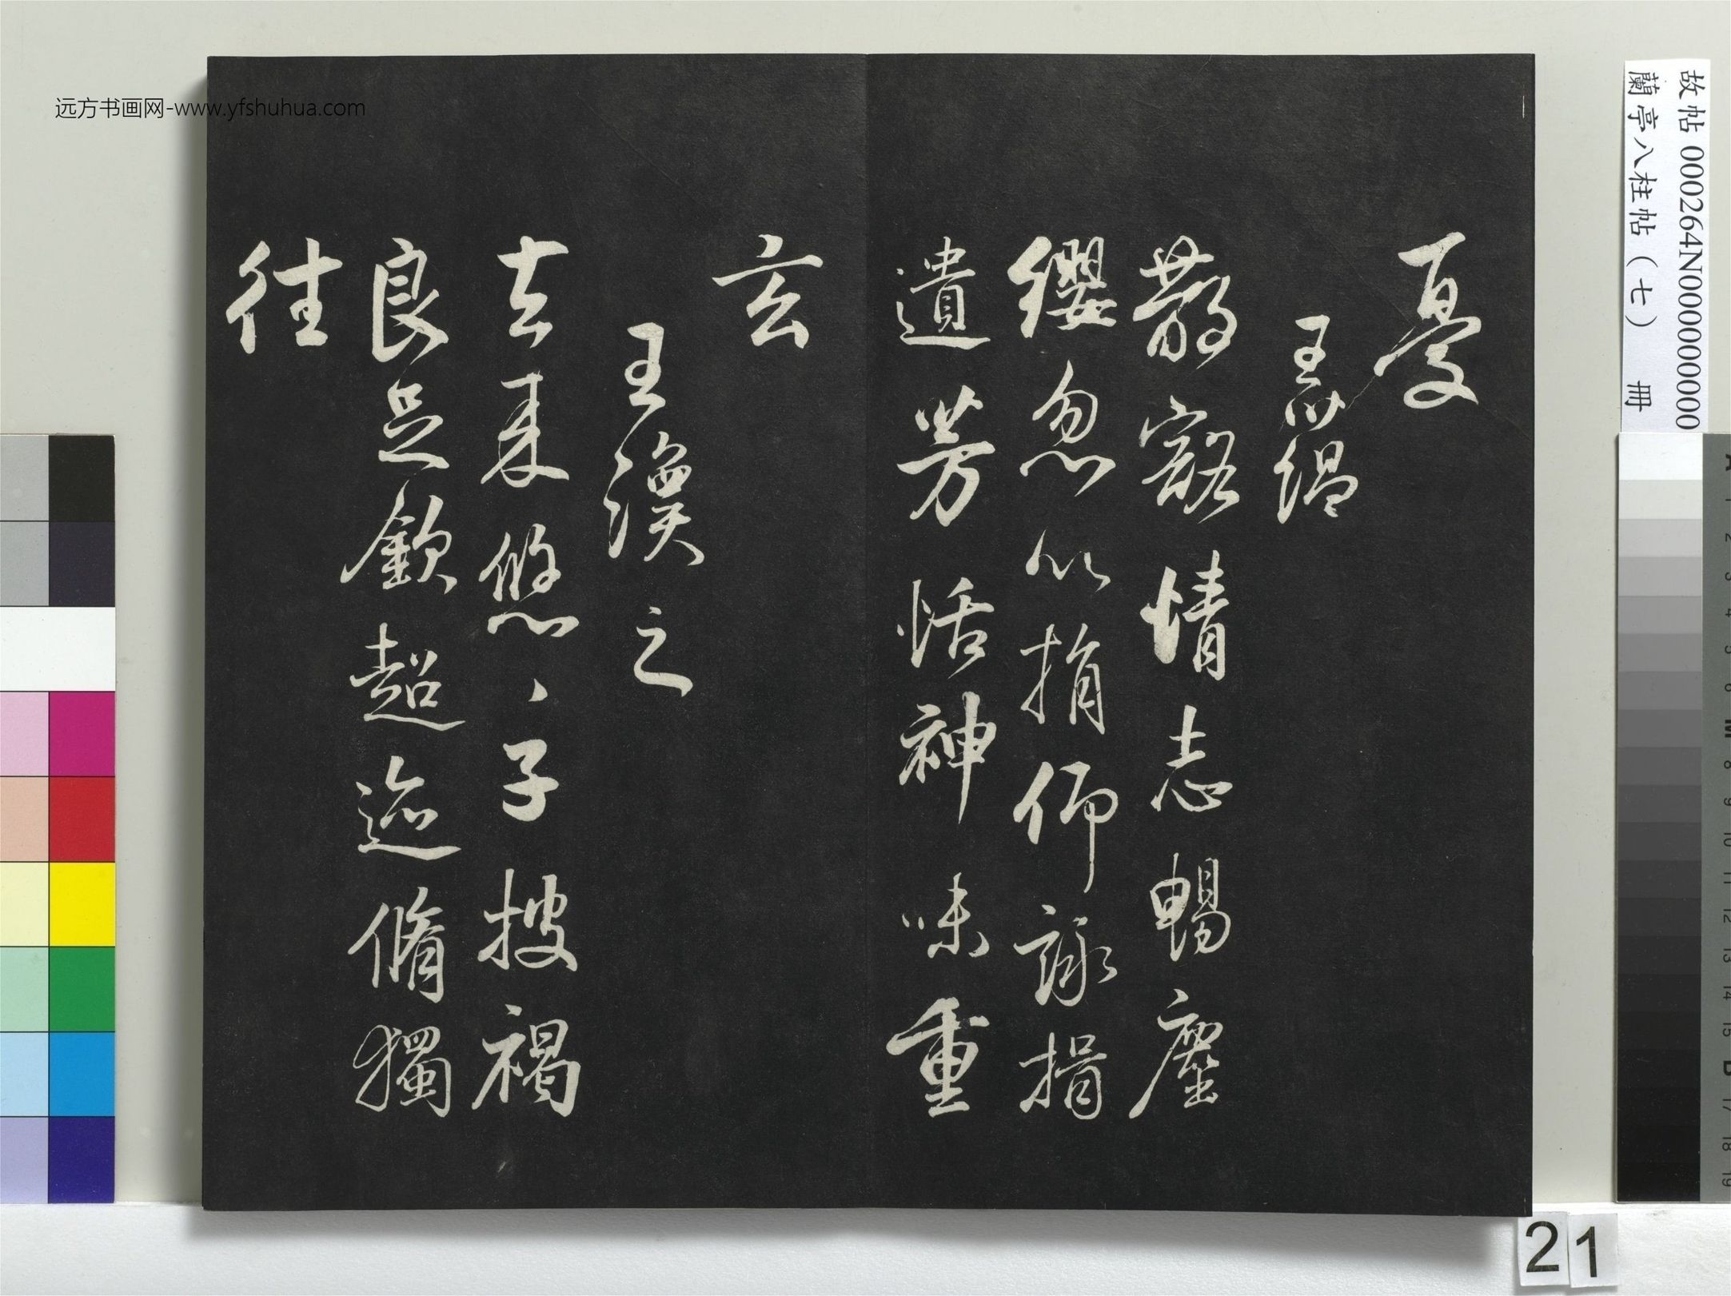 远方书画网-www.yfshuhua.com
憂
王藴
散豁情志暢塵
纓忽以捐仰詠揖
遺芳恬神味重
玄
王渙之
去来悠〻子披褐
良足欽超迹脩獨
往
故帖 000264N000000000
蘭亭八柱帖（七） 冊
21